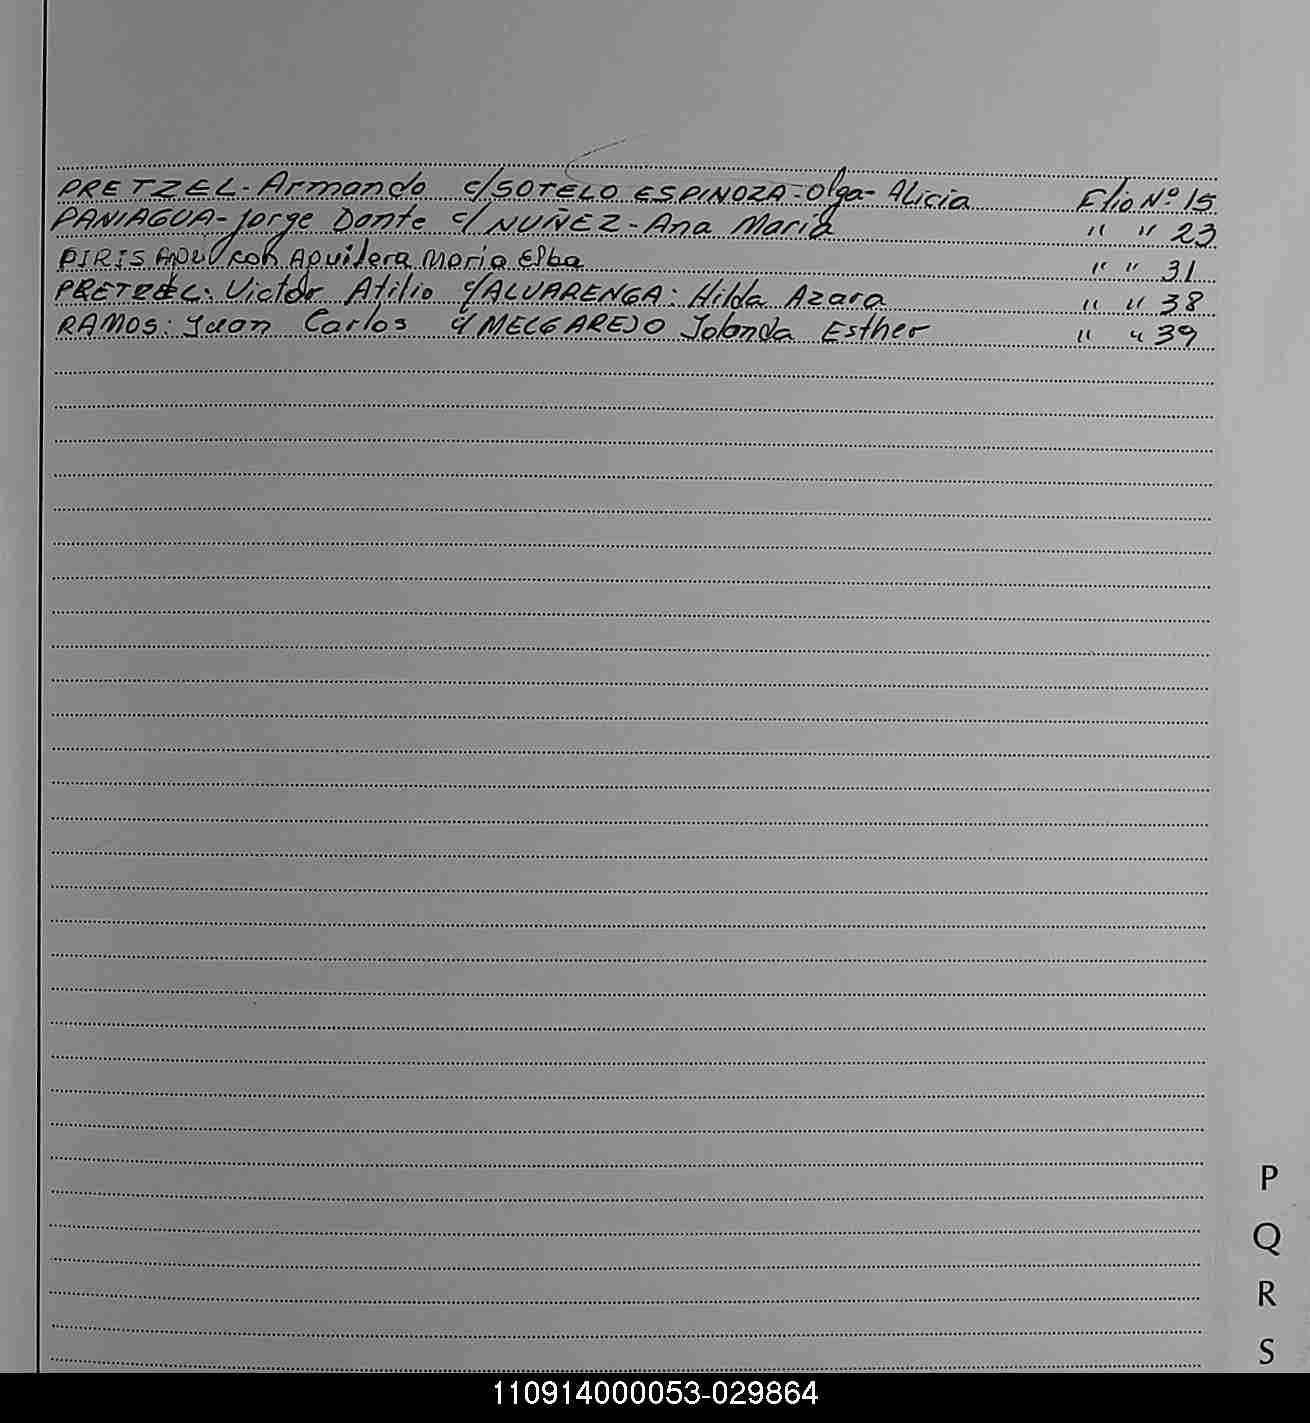 PRETZEL - Armando c/ SOTELO ESPINOZA - Olga - Alicia Flio Nº 15
PANIAGUA - Jorge Dante c/ NUÑEZ - Ana Maria " " 23
PIRIS con Aguilera Maria Elba " " 31
PRETZEL: Victor Atilio c/ ALVARENGA: Hilda Azara " " 38
RAMOS: Juan Carlos c/ MELGAREJO Iolanda Esther " " 39
P
Q
R
S
110914000053-029864